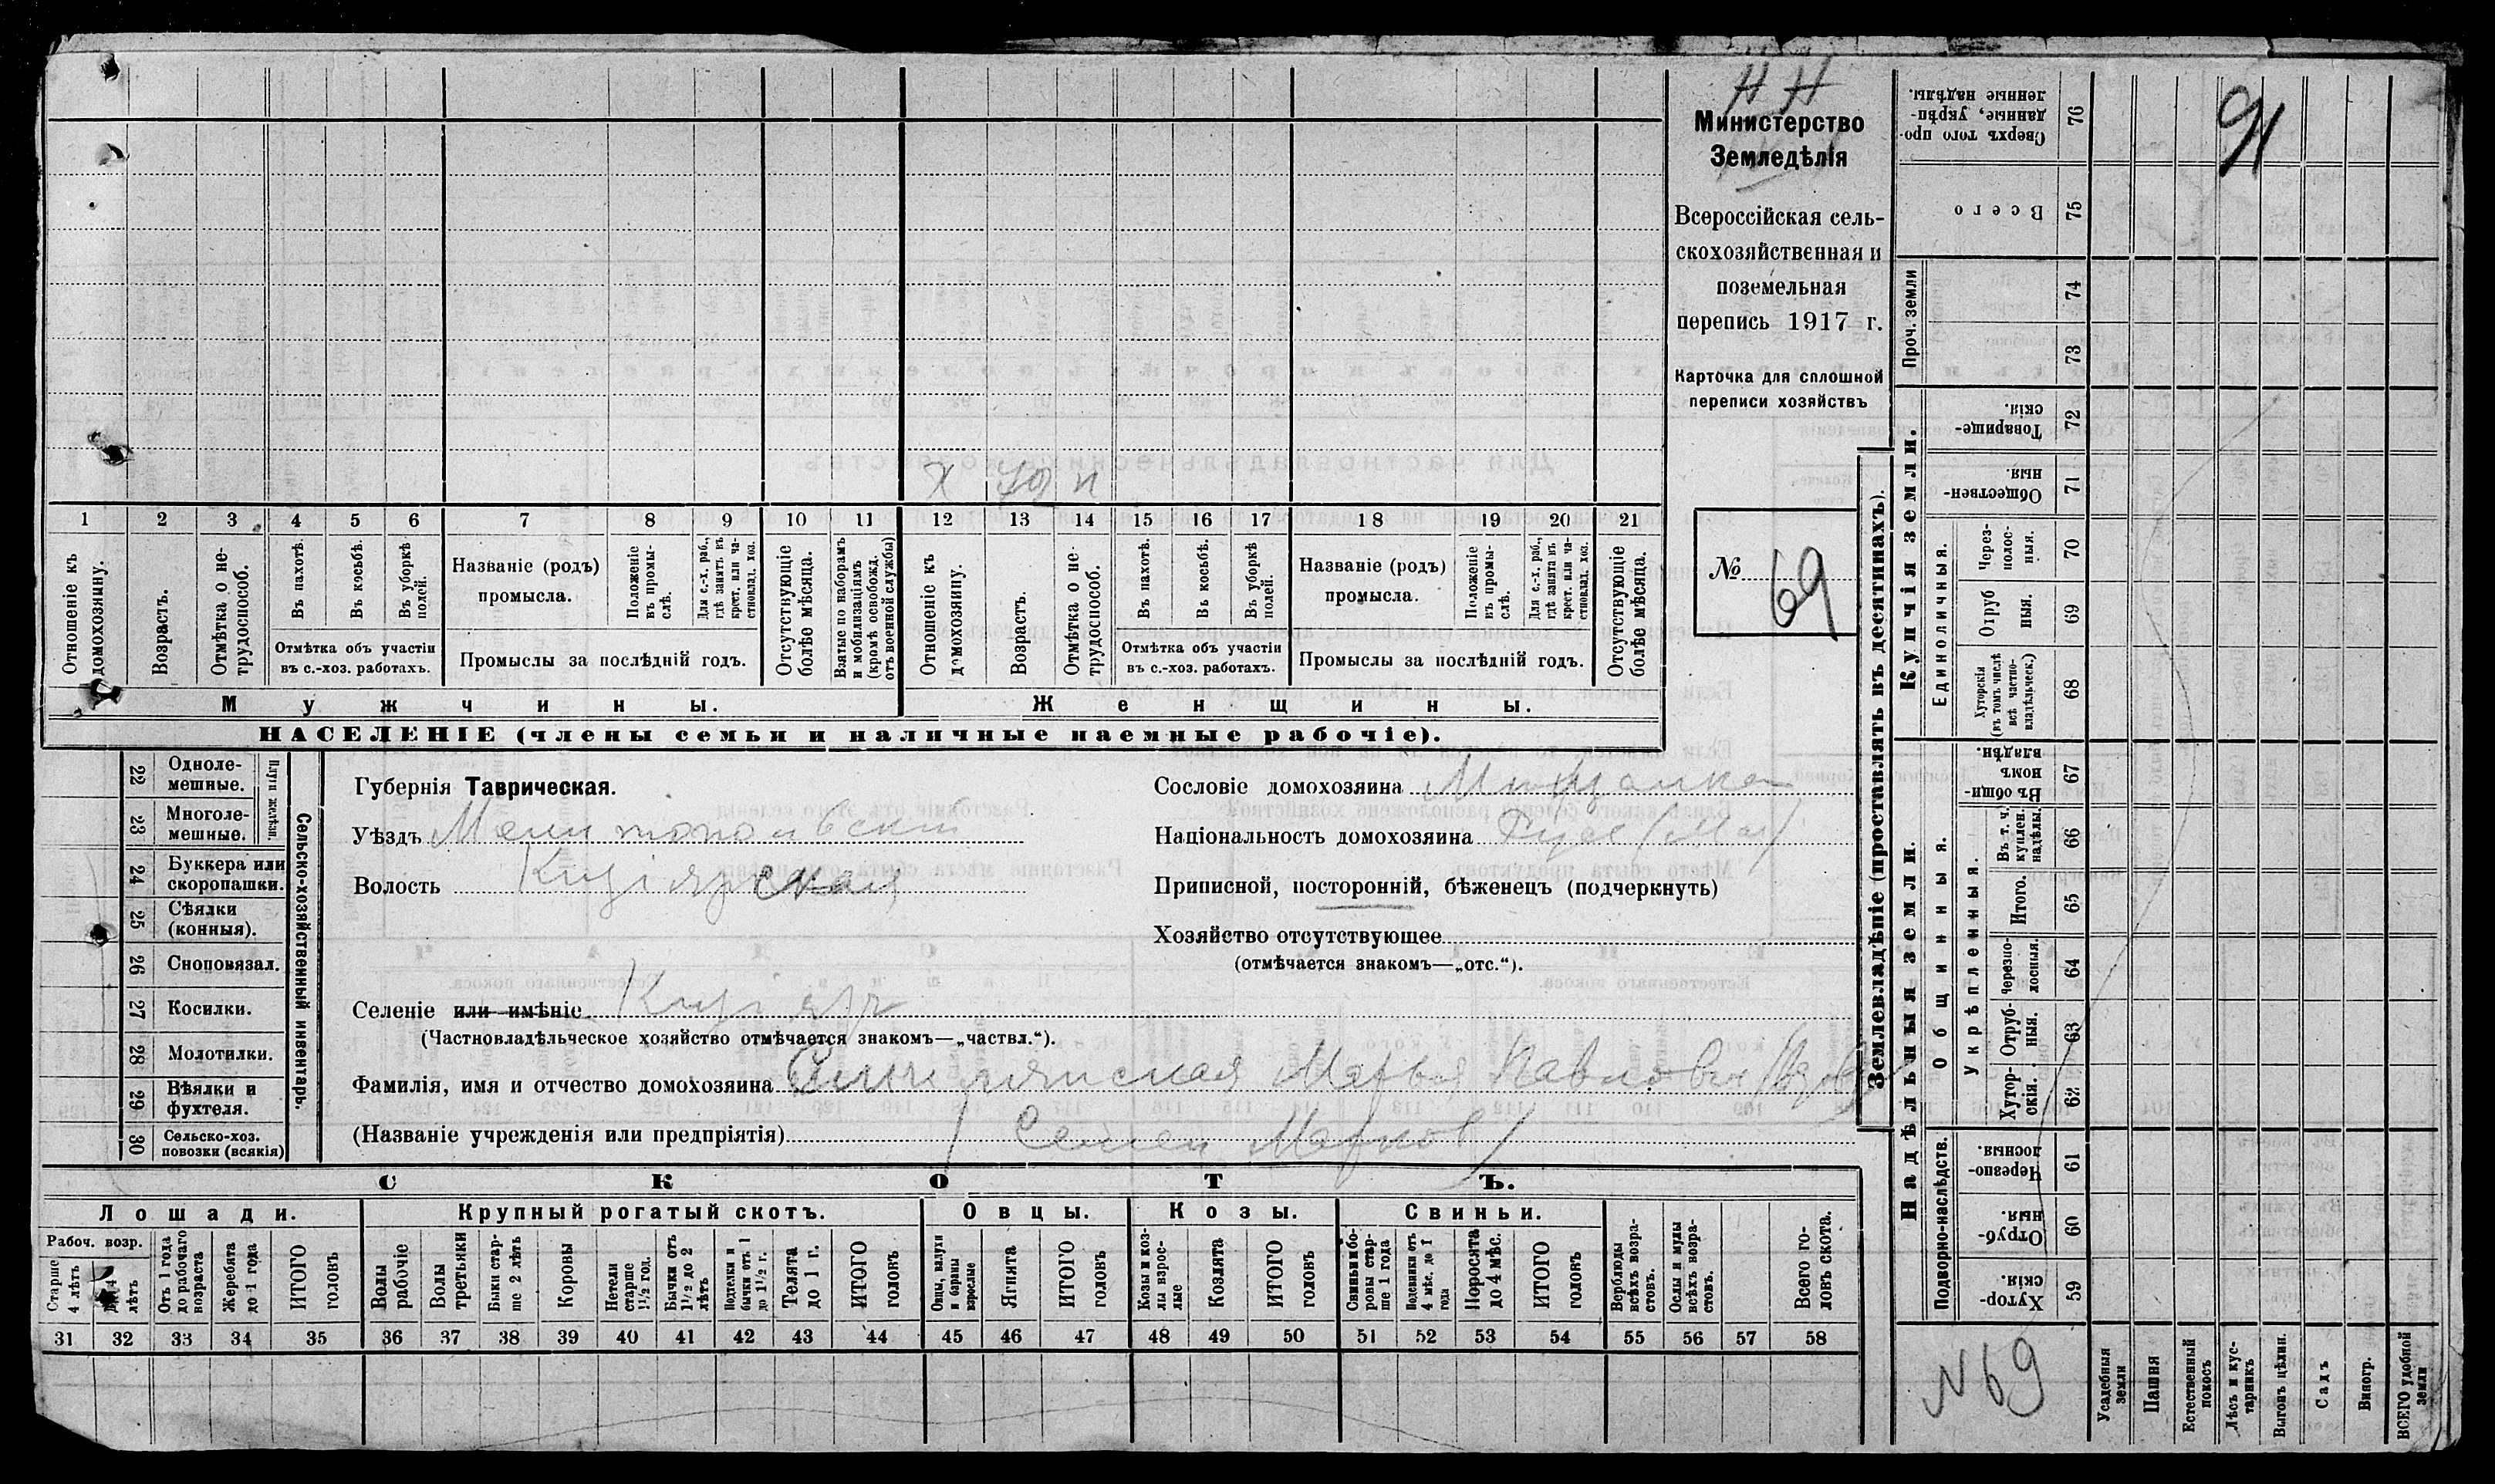 Н Н
Министерство
Земледѣлія
Всероссійская сель-
скохозяйственная и
поземельная
перепись 1917 г.
Карточка для сплошной
переписи хозяйствъ
№ 69
Х 79 н
1 2 3 4 5 6 7 8 9 10 11 12 13 14 15 16 17 18 19 20 21
Отношеніе къ домохозяину.
Возрастъ.
Отмѣтка о не-трудоспособ.
Въ пахотѣ.
Въ косьбѣ.
Въ уборкѣ полей.
Отмѣтка объ участіи
въ с.-хоз. работахъ.
Названіе (родъ)
промысла.
Положеніе въ промы-слѣ.
Для с.-х. раб., гдѣ занятъ въ крест. или ча-стновлад. хоз.
Промыслы за послѣдній годъ.
Отсутствующіе болѣе мѣсяца.
Взятые по наборамъ и мобилизаціямъ (кромѣ освобожд. отъ военной службы)
Отношеніе къ домохозяину.
Возрастъ.
Отмѣтка о не-трудоспособ.
Въ пахотѣ.
Въ косьбѣ.
Въ уборкѣ полей.
Отмѣтка объ участіи
въ с.-хоз. работахъ.
Названіе (родъ)
промысла.
Положеніе въ промы-слѣ.
Для с.-х. раб., гдѣ занята въ крест. или ча-стновлад. хоз.
Промыслы за послѣдній годъ.
Отсутствующіе болѣе мѣсяца.
Мужчины.
Женщины.
НАСЕЛЕНІЕ (члены семьи и наличные наемные рабочіе).
22 Одноле-мешные.
23 Многоле-мешные.
Плуги желѣзн.
24 Буккера или скоропашки.
25 Сѣялки (конныя).
26 Сноповязал.
27 Косилки.
28 Молотилки.
29 Вѣялки и фухтеля.
30 Сельско-хоз. повозки (всякія)
Сельско-хозяйственный инвентарь.
Губернія Таврическая.
Уѣздъ Мелитопольскій
Волость Кизіярская
Селеніе или имѣніе Кизіяр
(Частновладѣльческое хозяйство отмѣчается знакомъ—„частвл.“).
Фамилія, имя и отчество домохозяина Марья Павловна
(Названіе учрежденія или предпріятія) Семен Марков
Сословіе домохозяина Мѣщанка
Національность домохозяина Рус (Мал)
Приписной, посторонній, бѣженецъ (подчеркнуть)
Хозяйство отсутствующее
(отмѣчается знакомъ—„отс.“).
СКОТЪ.
Лошади.
Крупный рогатый скотъ.
Овцы.
Козы.
Свиньи.
Рабоч. возр.
Старше 4 лѣтъ
лѣтъ
Отъ 1 года до рабочаго возраста
Жеребята до 1 года
ИТОГО головъ
Волы рабочіе
Волы третьяки
Быки стар-ше 2 лѣтъ
Коровы
Нетели старше 1½ год.
Бычки отъ 1½ до 2 лѣтъ
Подтелки и бычки отъ 1 до 1½ г.
Телята до 1 г.
ИТОГО головъ
Овцы, валухи и бараны взрослые
Ягнята
ИТОГО головъ
Козы и коз-лы взрос-лые
Козлята
ИТОГО головъ
Свиньи и бо-ровы стар-ше 1 года
Подсвинки отъ 4 мѣс. до 1 года
Поросята до 4 мѣс.
ИТОГО головъ
Верблюды всѣхъ возра-стовъ.
Ослы и мулы всѣхъ возра-стовъ.
Всего го-ловъ скота.
31 32 33 34 35 36 37 38 39 40 41 42 43 44 45 46 47 48 49 50 51 52 53 54 55 56 57 58
Землевладѣніе (проставлять въ десятинахъ).
Купчія земли.
Надѣльныя земли.
76 Сверхъ того про-данные, укрѣп-ленные надѣлы.
75 Всего
Проч. земли
74
73
72 Товарище-скія.
71 Обществен-ныя.
Единоличныя.
70 Через-полос-ныя.
69 Отруб ныя.
68 Хуторскія (въ томъ числѣ всѣ частно-владѣльческ.)
Общинныя.
67 Въ общи-номъ владѣн.
Укрѣпленныя.
66 Въ т. ч. куплен. надѣлы.
65 Итого.
64 Черезпо-лосныя.
63 Отруб-ныя.
62 Хутор-скія.
Подворно-наслѣдств.
61 Черезпо-лосныя.
60 Отруб-ныя.
59 Хутор-скія.
91
N 69
Усадебныя земли
Пашня
Естественный покосъ
Лѣсъ и кус-тарникъ
Выгонъ цѣлин.
Садъ
Виногр.
ВСЕГО удобной земли